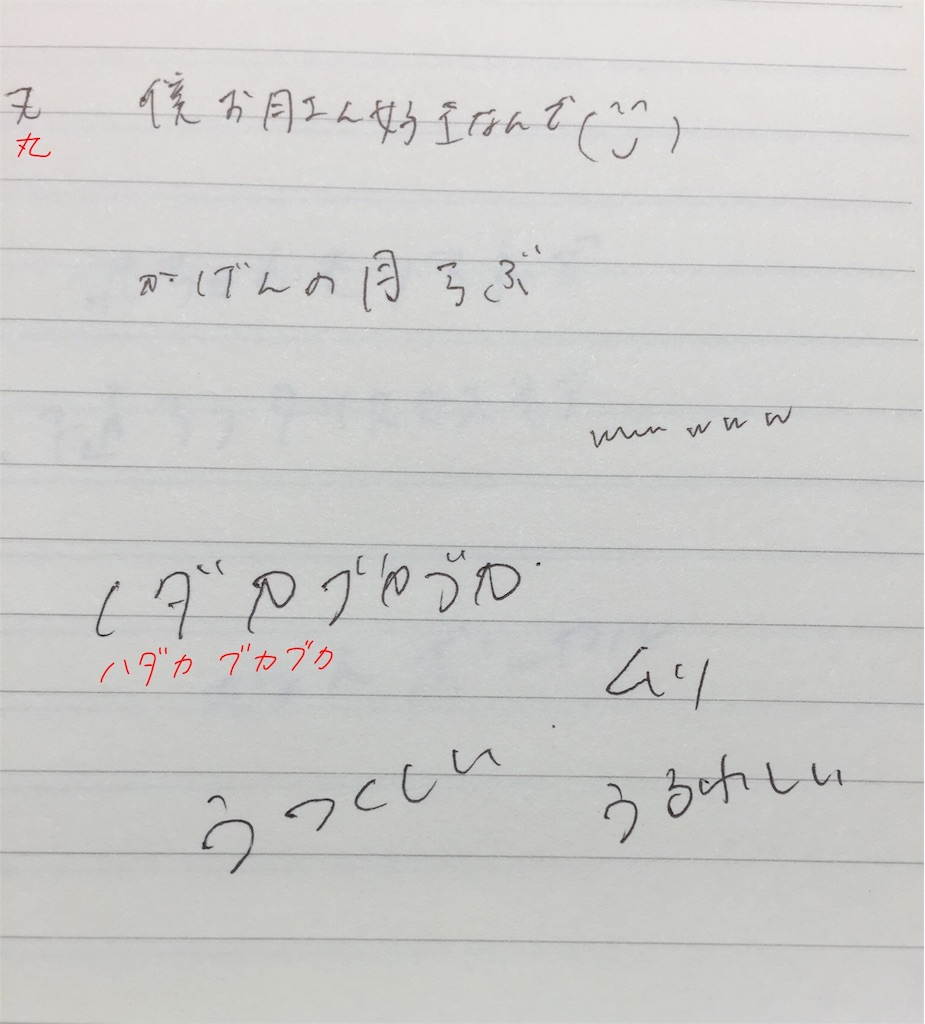 丸 僕お月さん好きなんで(^^)
丸
かげんの月 らぶ
wwwwww
ハダカブカブカ
ハダカ ブカブカ
ムリ
うつくしい
うるわしい